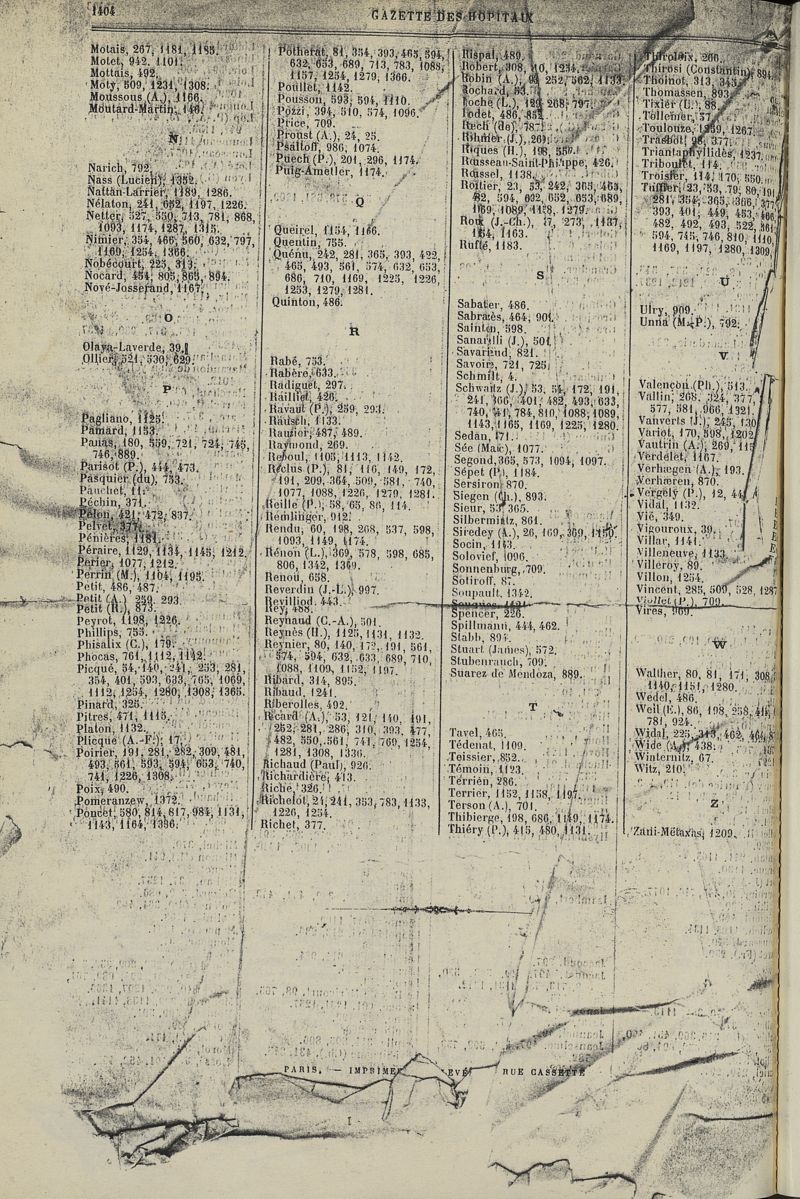 1404
GAZETTE DES HOPITAUX
Motais, 267, 1181, 1183.
Motet, 942, 1101.
Mottais, 492.
Moty, 509, 1231, 1308.
Moussous (A.), 1166.
Moutard-Martin, 146.
N
Narich, 792.
Nass (Lucien), 1352.
Nattan-Larrier, 1189, 1286.
Nélaton, 241, 652, 1197, 1226.
Netter, 527, 550, 713, 781, 868,
1093, 1174, 1287, 1315.
Nimier, 354, 466, 560, 632, 797,
1169, 1254, 1366.
Nobécourt, 225, 313.
Nocard, 454, 805, 865, 894.
Nové-Josserand, 1167.
O
Olaya-Laverde, 39.
Ollier, 521, 530, 629.
P
Pagliano, 1125.
Pamard, 1153.
Panas, 180, 559, 721, 724, 745,
746, 889.
Parisot (P.), 444, 473.
Pasquier (du), 753.
Pauchet, 11.
Péchin, 371.
Pélon, 421, 472, 837.
Pelvet, 377.
Pénières, 1181.
Péraire, 1129, 1134, 1145, 1212.
Périer, 1077, 1212.
Perrin (M.), 1104, 1195.
Petit, 486, 487.
Petit (A.), 259, 293.
Petit (R.), 873.
Peyrot, 1198, 1226.
Phillips, 755.
Phisalix (C.), 179.
Phocas, 761, 1112, 1142.
Picqué, 54, 140, 241, 253, 281,
354, 401, 593, 633, 765, 1069,
1112, 1254, 1280, 1308, 1365.
Pinard, 325.
Pitres, 471, 1115.
Platon, 1132.
Plicque (A.-F.), 17.
Poirier, 191, 281, 282, 309, 481,
493, 561, 593, 594, 653, 740,
741, 1226, 1308.
Poix, 490.
Pomeranzew, 1372.
Poncet, 580, 814, 817, 984, 1131,
1143, 1164, 1396.
Potherat, 81, 354, 393, 465, 594,
632, 653, 689, 713, 783, 1088,
1157, 1254, 1279, 1366.
Pouliet, 1142.
Pousson, 593, 594, 1110.
Pozzi, 394, 510, 574, 1096.
Price, 709.
Proust (A.), 24, 25.
Psaltoff, 986, 1074.
Puech (P.), 201, 296, 1174.
Puig-Ametler, 1174.
Q
Queirel, 1154, 1166.
Quentin, 755.
Quénu, 242, 281, 365, 393, 422,
465, 493, 561, 574, 632, 653,
686, 710, 1169, 1225, 1226,
1253, 1279, 1281.
Quinton, 486.
R
Rabé, 753.
Rabère, 633.
Radiguet, 297.
Railliet, 426.
Ravaut (P.), 259, 293.
Rausch, 1133.
Rauzier, 487, 489.
Raymond, 269.
Reboul, 1105, 1113, 1142.
Reclus (P.), 81, 116, 149, 172,
191, 209, 364, 509, 581, 740,
1077, 1088, 1226, 1279, 1281.
Reille (P.), 58, 65, 86, 114.
Remlinger, 912.
Rendu, 60, 198, 268, 537, 598,
1093, 1149, 1174.
Rénon (L.), 369, 578, 598, 685,
806, 1342, 1369.
Renou, 658.
Reverdin (J.-L.), 997.
Revilliod, 443.
Rey, 488.
Reynaud (C.-A.), 501.
Reynès (H.), 1125, 1131, 1132.
Reynier, 80, 140, 172, 191, 561,
574, 594, 632, 633, 689, 710,
1088, 1109, 1152, 1197.
Ribard, 314, 895.
Ribaud, 1241.
Riberolles, 492.
Ricard (A.), 53, 121, 140, 191,
252, 281, 286, 310, 393, 477,
482, 550, 561, 741, 769, 1254,
1281, 1308, 1336.
Richaud (Paul), 926.
Richardière, 413.
Riche, 326.
Richelot, 21, 241, 353, 783, 1133,
1226, 1254.
Richet, 377.
Rispal, 489.
Robert, 308, 1254.
Robin (A.), 252, 562, 1133.
Rochard, 83.
Roche (L.), 268, 797.
Rodet, 486,
787.
Rohmer (J.), 269.
Roques (H.), 198, 557.
Rousseau-Saint-Philippe, 426.
Roussel, 1138.
Routier, 23, 53, 242, 365, 465,
594, 632, 652, 653, 689,
1169, 1089, 1128, 1279.
Roux (J.-Ch.), 17, 273, 1137,
1163.
Ruflé, 1183.
S
Sabater, 486.
Sabrazès, 464, 901.
Sainton, 598.
Sanarelli (J.), 501.
Savariaud, 821.
Savoire, 721, 725.
Schmilt, 4.
Schwartz (J.), 53, 54, 172, 191,
241, 366, 401, 482, 493, 633,
740, 741, 784, 810, 1088, 1089,
1143, 1165, 1169, 1225, 1280.
Sedan, 171.
Sée (Marc), 1077.
Segond, 365, 573, 1094, 1097.
Sépet (P.), 1184.
Sersiron, 870.
Siegen (Ch.), 893.
Sieur, 53, 365.
Silbermintz, 861.
Siredey (A.), 26, 169, 369, 1150.
Socin, 1143.
Solovief, 1096.
Sonnenburg, 709.
Sotiroff, 87.
Soupault, 1342.
Spencer, 226.
Spillmann, 444, 462.
Stabb, 894.
Stuart (James), 572.
Stubenrauch, 709.
Suarez de Mendoza, 889.
T
Tavel, 465.
Tédenat, 1109.
Teissier, 852.
Témoin, 1123.
Terrien, 286.
Terrier, 1152, 1158, 1197.
Terson (A.), 701.
Thibierge, 198, 686, 1149, 1174.
Thiéry (P.), 415, 480, 1131.
Thiroloix, 266.
Thirosi (Constantin), 894.
Thoinot, 313, 345.
Thomassen, 893.
Tixier (L.), 88.
Tollemer, 57.
Toulouze, 1259, 1267.
377.
Triantaphyllidès, 1237.
Triboulet, 114.
Troisier, 114, 170, 550.
Tuffier, 23, 53, 79, 80, 191,
281, 354, 365, 366, 377,
393, 401, 449, 453, 466,
482, 492, 493, 522, 561,
594, 745, 746, 810, 1110,
1169, 1197, 1280, 1309.
U
Ulry, 909.
Unna (M.-P.), 792.
V
Valençon (Ph.), 513.
Vallin, 268, 324, 377,
577, 581, 966, 1321.
Vanverts (J.), 245, 130
Variot, 170, 598, 1202.
Vautrin (A.), 269, 115
Verdelet, 1167.
Verhægen (A.), 193.
Verhæren, 870.
Vergely (P.), 12, 44
Vidal, 1132.
Vié, 349.
Vigouroux, 39.
Villar, 1141.
Villeneuve, 1133.
Villeroy, 89.
Villon, 1254.
Vincent, 285, 509, 528, 1287
Viollet (P.), 709.
Vires, 969.
W
Walther, 80, 81, 171, 308,
1140, 1151, 1280.
Wedel, 486.
Weil (E.), 86, 198, 258,
781, 924.
Widal, 225, 313, 462, 464,
Wide (A.), 438.
Winternitz, 67.
Witz, 210.
Z
Zani-Métaxas, 1209.
PARIS. — IMPRIME
RUE CASSETTE